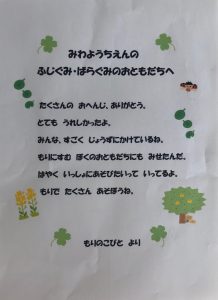 みわようちえんの
ふじぐみ・ばらぐみのおともだちへ
たくさんの おへんじ、ありがとう。
とても うれしかったよ。
みんな、すごく じょうずにかけているね。
もりにすむ ぼくのおともだちにも みせたんだ。
はやく いっしょにあそびたいって いってるよ。
もりで たくさん あそぼうね。
もりのこびと より